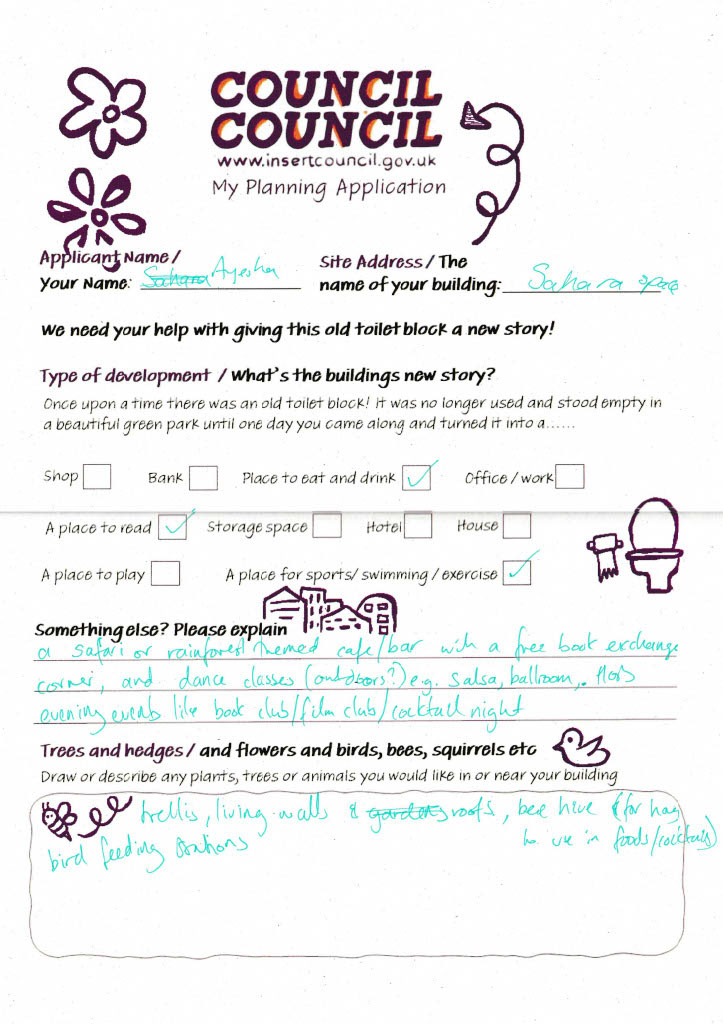 COUNCIL
COUNCIL
www.insertcouncil.gov.uk
My Planning Application
Applicant Name /
Your Name: Sahara Ayesha
Site Address / The
name of your building: Sahara space
We need your help with giving this old toilet block a new story!
Type of development / What's the buildings new story?
Once upon a time there was an old toilet block! It was no longer used and stood empty in
a beautiful green park until one day you came along and turned it into a......
Shop Bank Place to eat and drink ✓ Office / work
A place to read ✓ Storage space Hotel House
A place to play A place for sports/ swimming / exercise ✓
Something else? Please explain
a safari or rainforest themed cafe/bar with a free book exchange
corner, and dance classes (outdoors?) e.g. Salsa, ballroom,
evening events like book club/film club/cocktail night
Trees and hedges / and flowers and birds, bees, squirrels etc
Draw or describe any plants, trees or animals you would like in or near your building
trellis, living walls & gardens roofs, bee hive (for honey
to use in foods/cocktails)
bird feeding stations